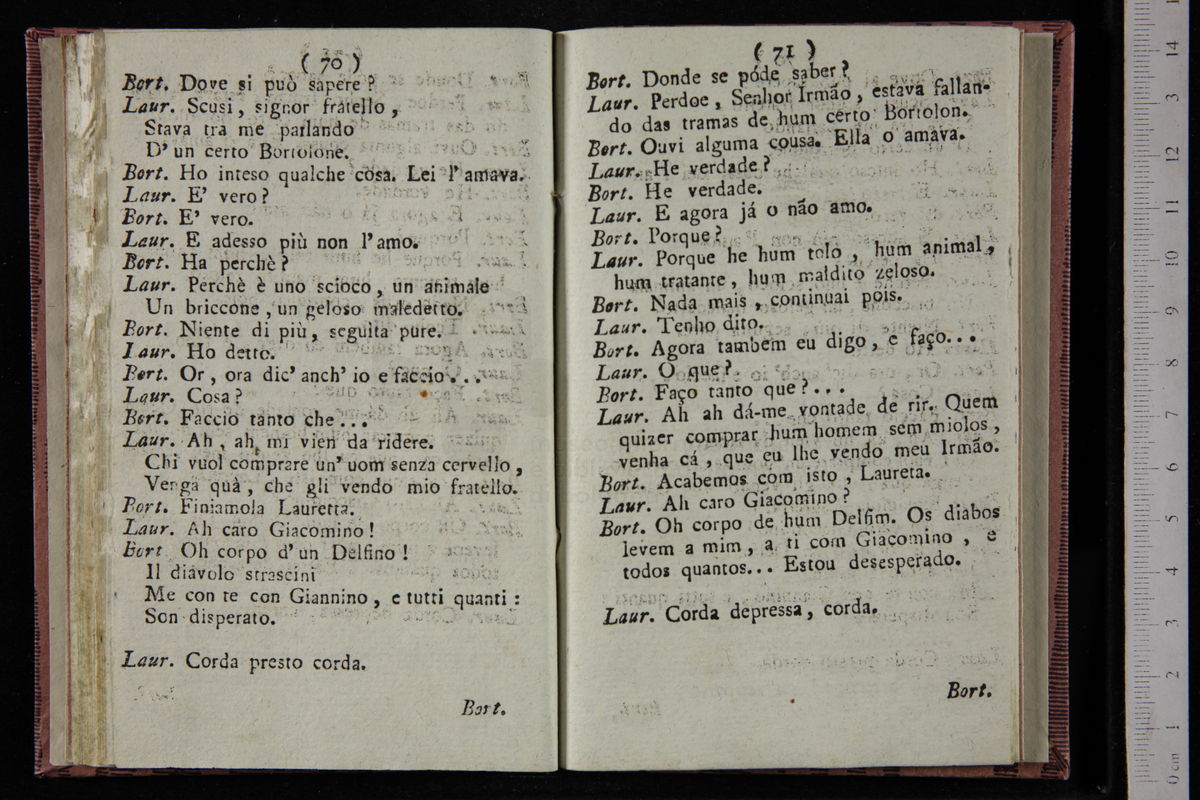 ( 70 )
Bort. Dove si può sapere?
Laur. Scusi, signor fratello,
Stava tra me parlando
D' un certo Bortolone.
Bort. Ho inteso qualche cosa. Lei l' amava.
Laur. E' vero?
Bort. E' vero.
Laur. E adesso più non l' amo.
Bort. Ha perchè?
Laur. Perchè è uno scioco, un animale
Un briccone, un geloso maledetto.
Bort. Niente di più, seguita pure.
Laur. Ho detto.
Bort. Or, ora dic' anch' io e faccio...
Laur. Cosa?
Bort. Faccio tanto che...
Laur. Ah, ah, mi vien da ridere.
Chi vuol comprare un' uom senza cervello,
Venga quà, che gli vendo mio fratello.
Bort. Finiamola Lauretta.
Laur. Ah caro Giacomino!
Bort Oh corpo d' un Delfino!
Il diavolo strascini
Me con te con Giannino, e tutti quanti:
Son disperato.
Laur. Corda presto corda.
Bort.
( 71 )
Bort. Donde se póde saber?
Laur. Perdoe, Senhor Irmão, estava fallan-
do das tramas de hum certo Bortolon.
Bort. Ouvi alguma cousa. Ella o amava.
Laur. He verdade?
Bort. He verdade.
Laur. E agora já o não amo.
Bort. Porque?
Laur. Porque he hum tolo, hum animal,
hum tratante, hum maldito zeloso.
Bort. Nada mais, continuai pois.
Laur. Tenho dito.
Bort. Agora tambem eu digo, e faço...
Laur. O que?
Bort. Faço tanto que?...
Laur. Ah ah dá-me vontade de rir. Quem
quizer comprar hum homem sem miolos,
venha cá, que eu lhe vendo meu Irmão.
Bort. Acabemos com isto, Laureta.
Laur. Ah caro Giacomino?
Bort. Oh corpo de hum Delfim. Os diabos
levem a mim, a ti com Giacomino, e
todos quantos... Estou desesperado.
Laur. Corda depressa, corda.
Bort.
0 cm 1 2 3 4 5 6 7 8 9 10 11 12 13 14